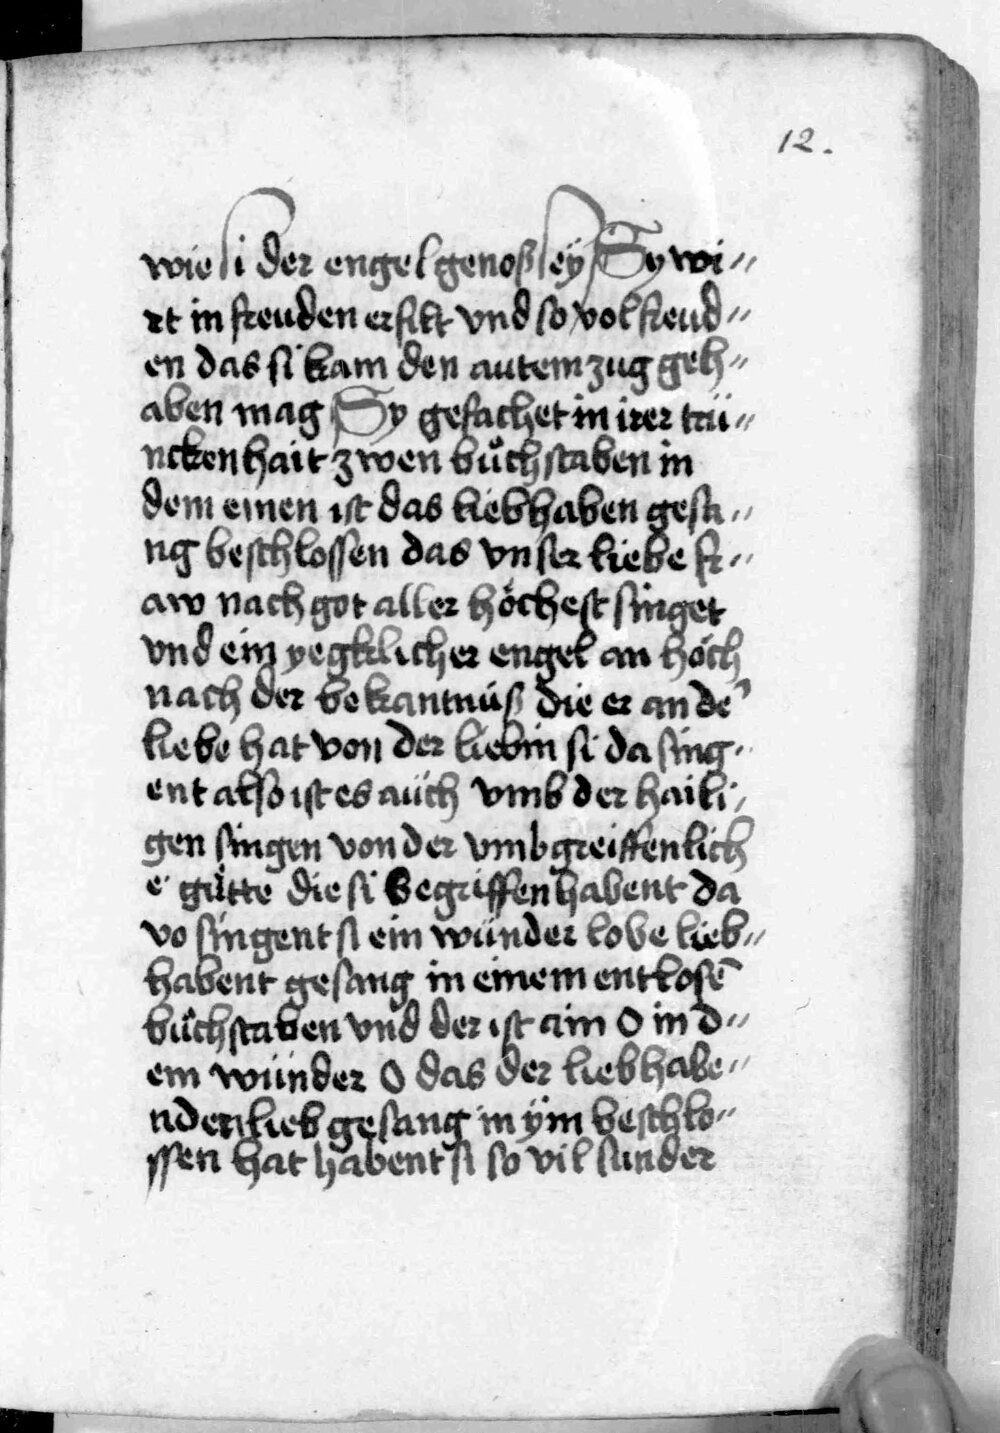 12.
wie si der engel genoß sey Sy wi„
rt in freuden erkikt vnd so vol freud„
en das si kam den autem zug geh„
aben mag Sy gesachet in irer trü„
nckenhait zwen bůchstaben in
dem einen ist das liebhaben gesa„
ng beschlossen das vnser liebe fr„
aw nach got aller höchest singet
vnd ein yegklicher engel an höch
nach der bekantnüß die er an de᷑
liebe hat von der liebin si da sing„
ent also ist es aüch vmb der haili„
gen singen von der vmbgreiffenlich
e᷑ gůtte die si begriffen habent da
vo singent si ein wünder lobe lieb„
habent gesang in einem entlosē
bůchstaben vnd der ist ain O in d„
em wünder O das der liebhabe„
nden lieb gesang in ÿm beschlo„
ssen hat habent si so vil sunder